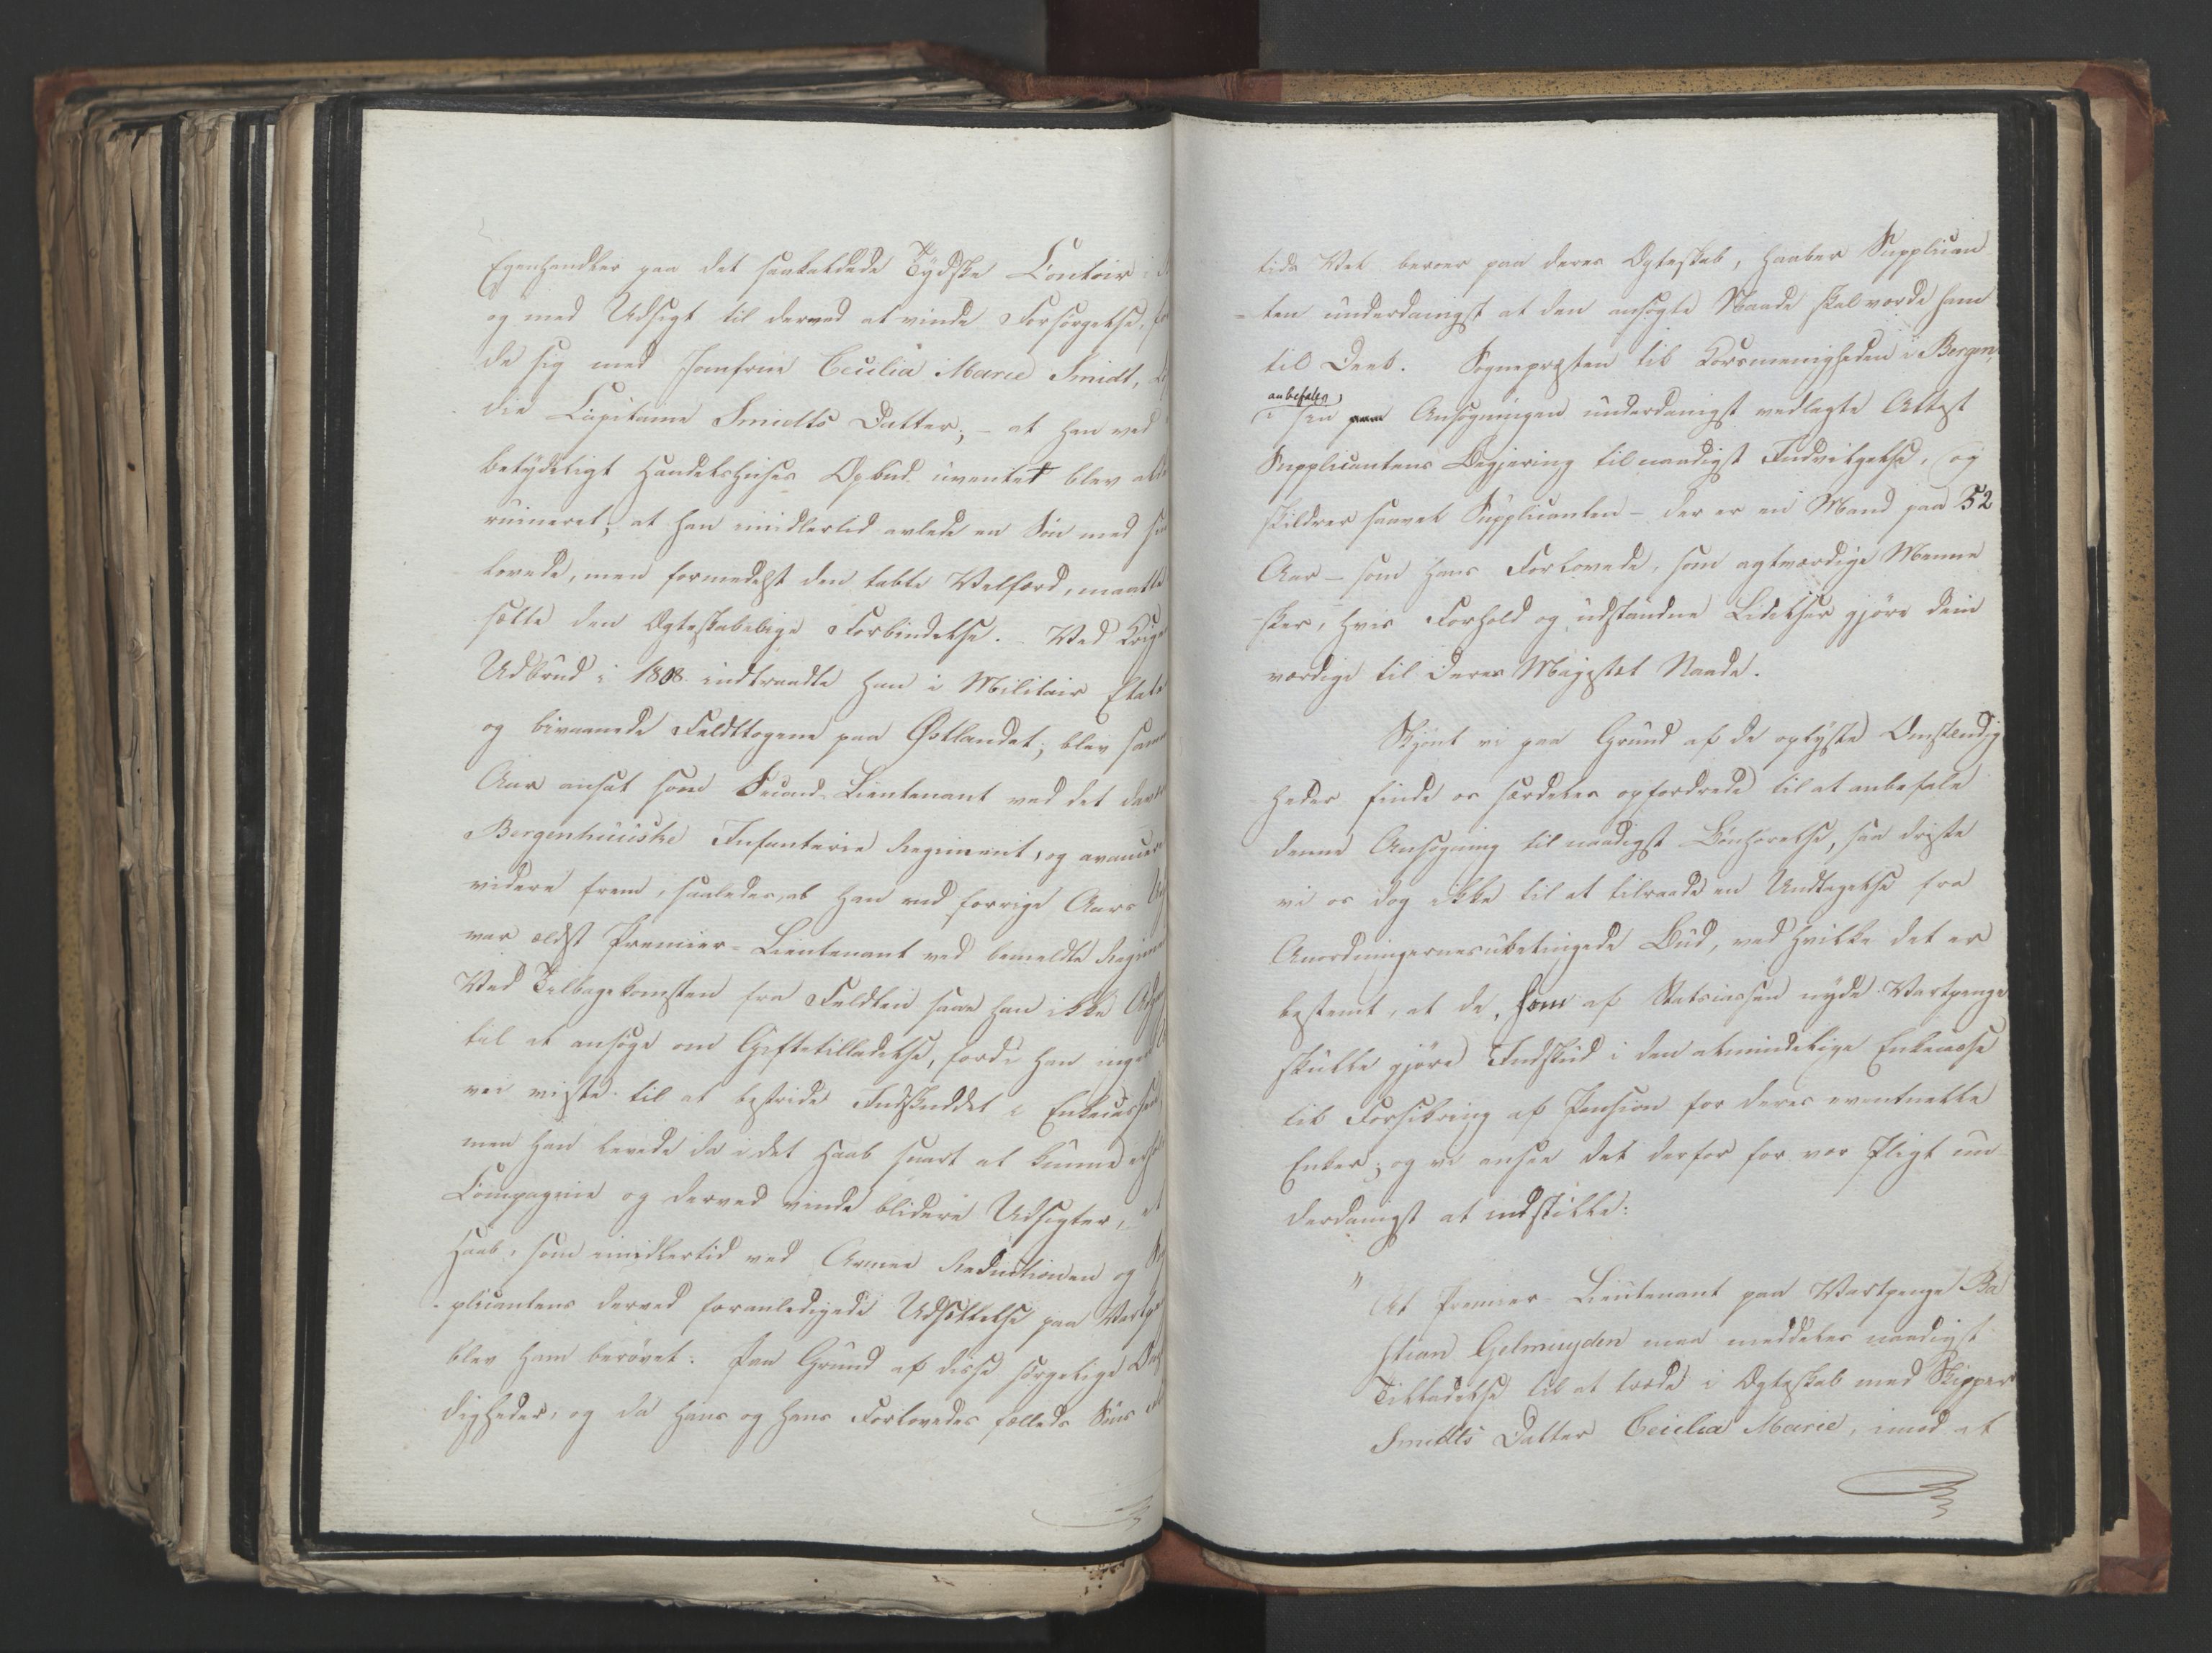 Egenhandler paa det saakaldede Tydske Contoir i
og med Udsigt til derved at vinde Forsørgelse,
de sig med Jomfrue Cecilia Marie Smidt,
die Capitaine Smidts Datter; – at han ved
betydeligt Handelshuses Opbud uventet blev
ruineret; at han imidlertid avlede en Søn med
lovede, men formedelst den tabte Velfærd, maatte
sætte den Ægteskabelige Forbindelse. – Ved Krigens
Udbrud i 1808 indtraadte han i Militair Etaten
og bivaanede Feldttogene paa Østlandet; blev samme
Aar ansat som Second-Lieutenant ved det
Bergenhuuske Infanterie Regiment, og avancerede
videre frem, saaledes, at han ved forrige Aars
var ældst Premier-Lieutenant ved bemeldte Regiment
Ved Tilbagekomsten fra Feldten saae han ikke
til at ansøge om Giftetilladelse, fordi han ingen
vei vidste til at bestride Indskuddet i Enkecassen,
men han levede da i det Haab snart at kunne erholde
Compagnie og derved vinde blidere Udsigter, et
Haab, som imidlertid ved Armee Reductionen og
plicantens derved foranledigede Udsættelse paa
blev ham berøvet. Paa Grund af disse sørgelige
digheder, og da hans og hans Forlovedes fælleds Søns
tids Vel beroer paa deres Ægteskab, haaber Supplican
=ten underdanigst at den ansøgte Naade skal vorde ham
til Deel. Sognepræsten til Korsmenigheden i Bergen,
anbefaler,
i sin Ansøgningen underdanigst vedlagte Attest
Supplicantens Begjering til naadigst Indvilgelse, og
skildrer saavel Supplicanten – der er en Mand paa 52
Aar – som hans Forlovede, som agtværdige Menne
sker, hvis Forhold og udstandne Lidelser gjøre dem
værdige til Deres Majestæt Naade.
Skjønt vi paa Grund af de oplyste Omstændig
heder finde os særdeles opfordrede til at anbefale
denne Ansøgning til naadigst Bønhørelse, saa driste
vi os dog ikke til at tilraade en Undtagelse fra
Anordningernes ubetingede Bud, ved hvilke det er
bestemt, at de, som af Statscassen nyde Vartpenge
skulle gjøre Indskud i den almindelige Enkecasse
til Forsikring af Pension for deres eventuelle
Enker; og vi ansee det derfor for vor Pligt un
derdanigst at indstille:
" At Premier-Lieutenant paa Vartpenge Ba
stian Gelmuyden maa meddeles naadigst
Tilladelse til at træde i Ægteskab med Skipper
Smidts Datter Cecilia Marie, imod at